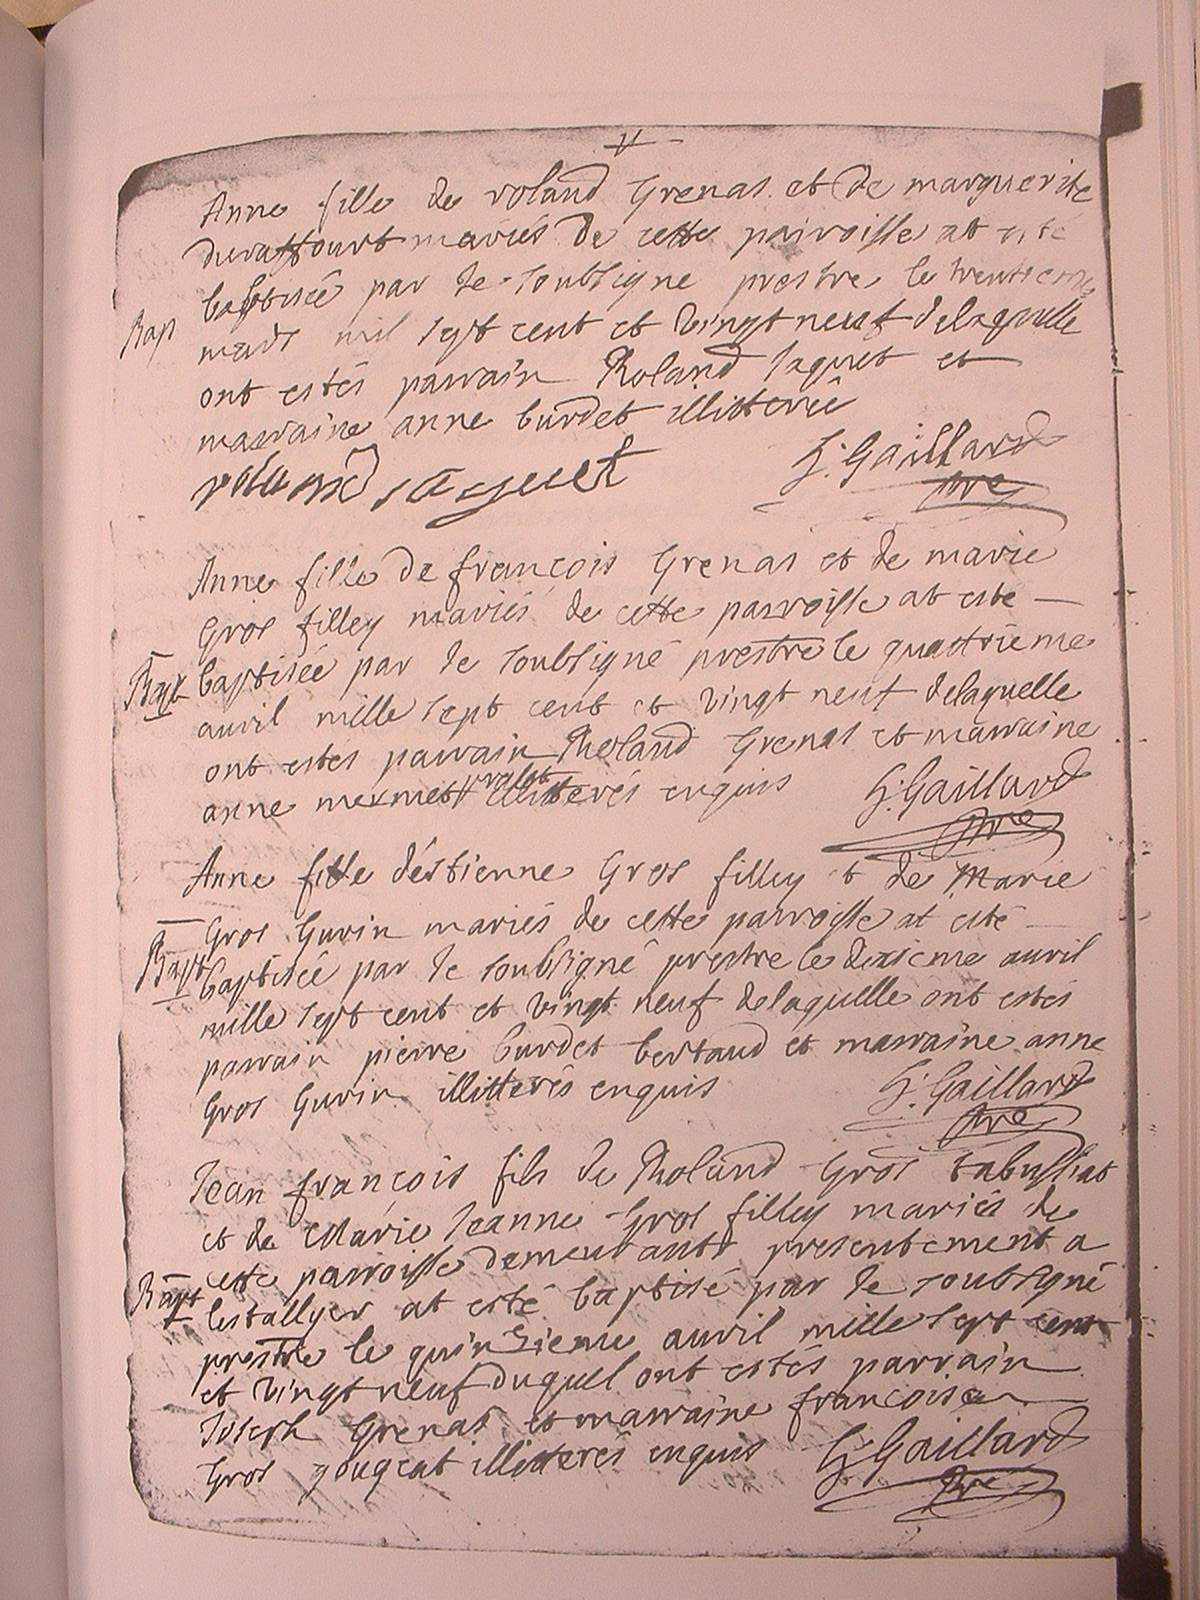 Anne fille de roland Grenas et de marguerite
duraffourt mariés de cette pairoisse at esté
baptisée par le soubsigne prestre le trentieme
mars mil sept cent et vingt neuf delaquelle
Bap
ont estés parrain Roland Jaquet et
marraine anne burdet illitterée
roland jaquet G: Gaillard
pre
Anne fille de françois Grenas et de marie
Gros filley mariés de cette parroisse at esté
Bapt baptisée par le soubsigné prestre le quattrieme
avril mille sept cent et vingt neuf delaquelle
ont estes parrain Roland Grenas et marraine
anne mermet illitterés enquis G: Gaillard
pre
Anne fille d'éstienne Gros filley et de Marie
Gros Gurin mariés de cette parroisse at esté
Bapt baptisée par le soubsigné prestre le dixieme avril
mille sept cent et vingt neuf delaquelle ont estés
parrain pierre burdet bertaud et marraine anne
Gros Gurin illitterés enquis G: Gaillard
pre
Jean françois fils de Roland Gros tabussiat
et de Marie Jeanne Gros filley mariés de
cette parroisse demeurants presentement a
Bapt lestallyer at esté baptisé par le soubsigné
prestre le quinzieme avril mille sept cent
et vingt neuf duquel ont estés parrain
Joseph Grenas et marraine francoise
Gros gougeat illitterés enquis G: Gaillard
pre